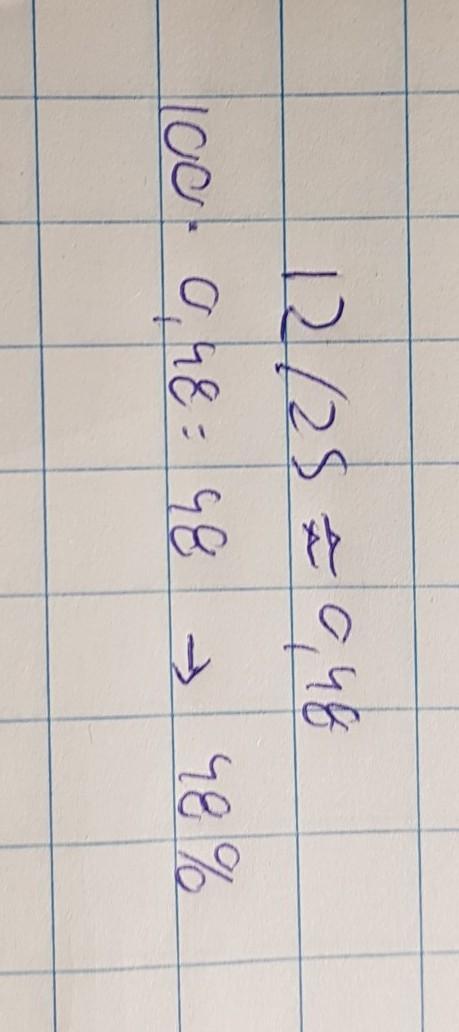 12/25 ≈ 0,48
100 · 0,48 = 48 → 48%